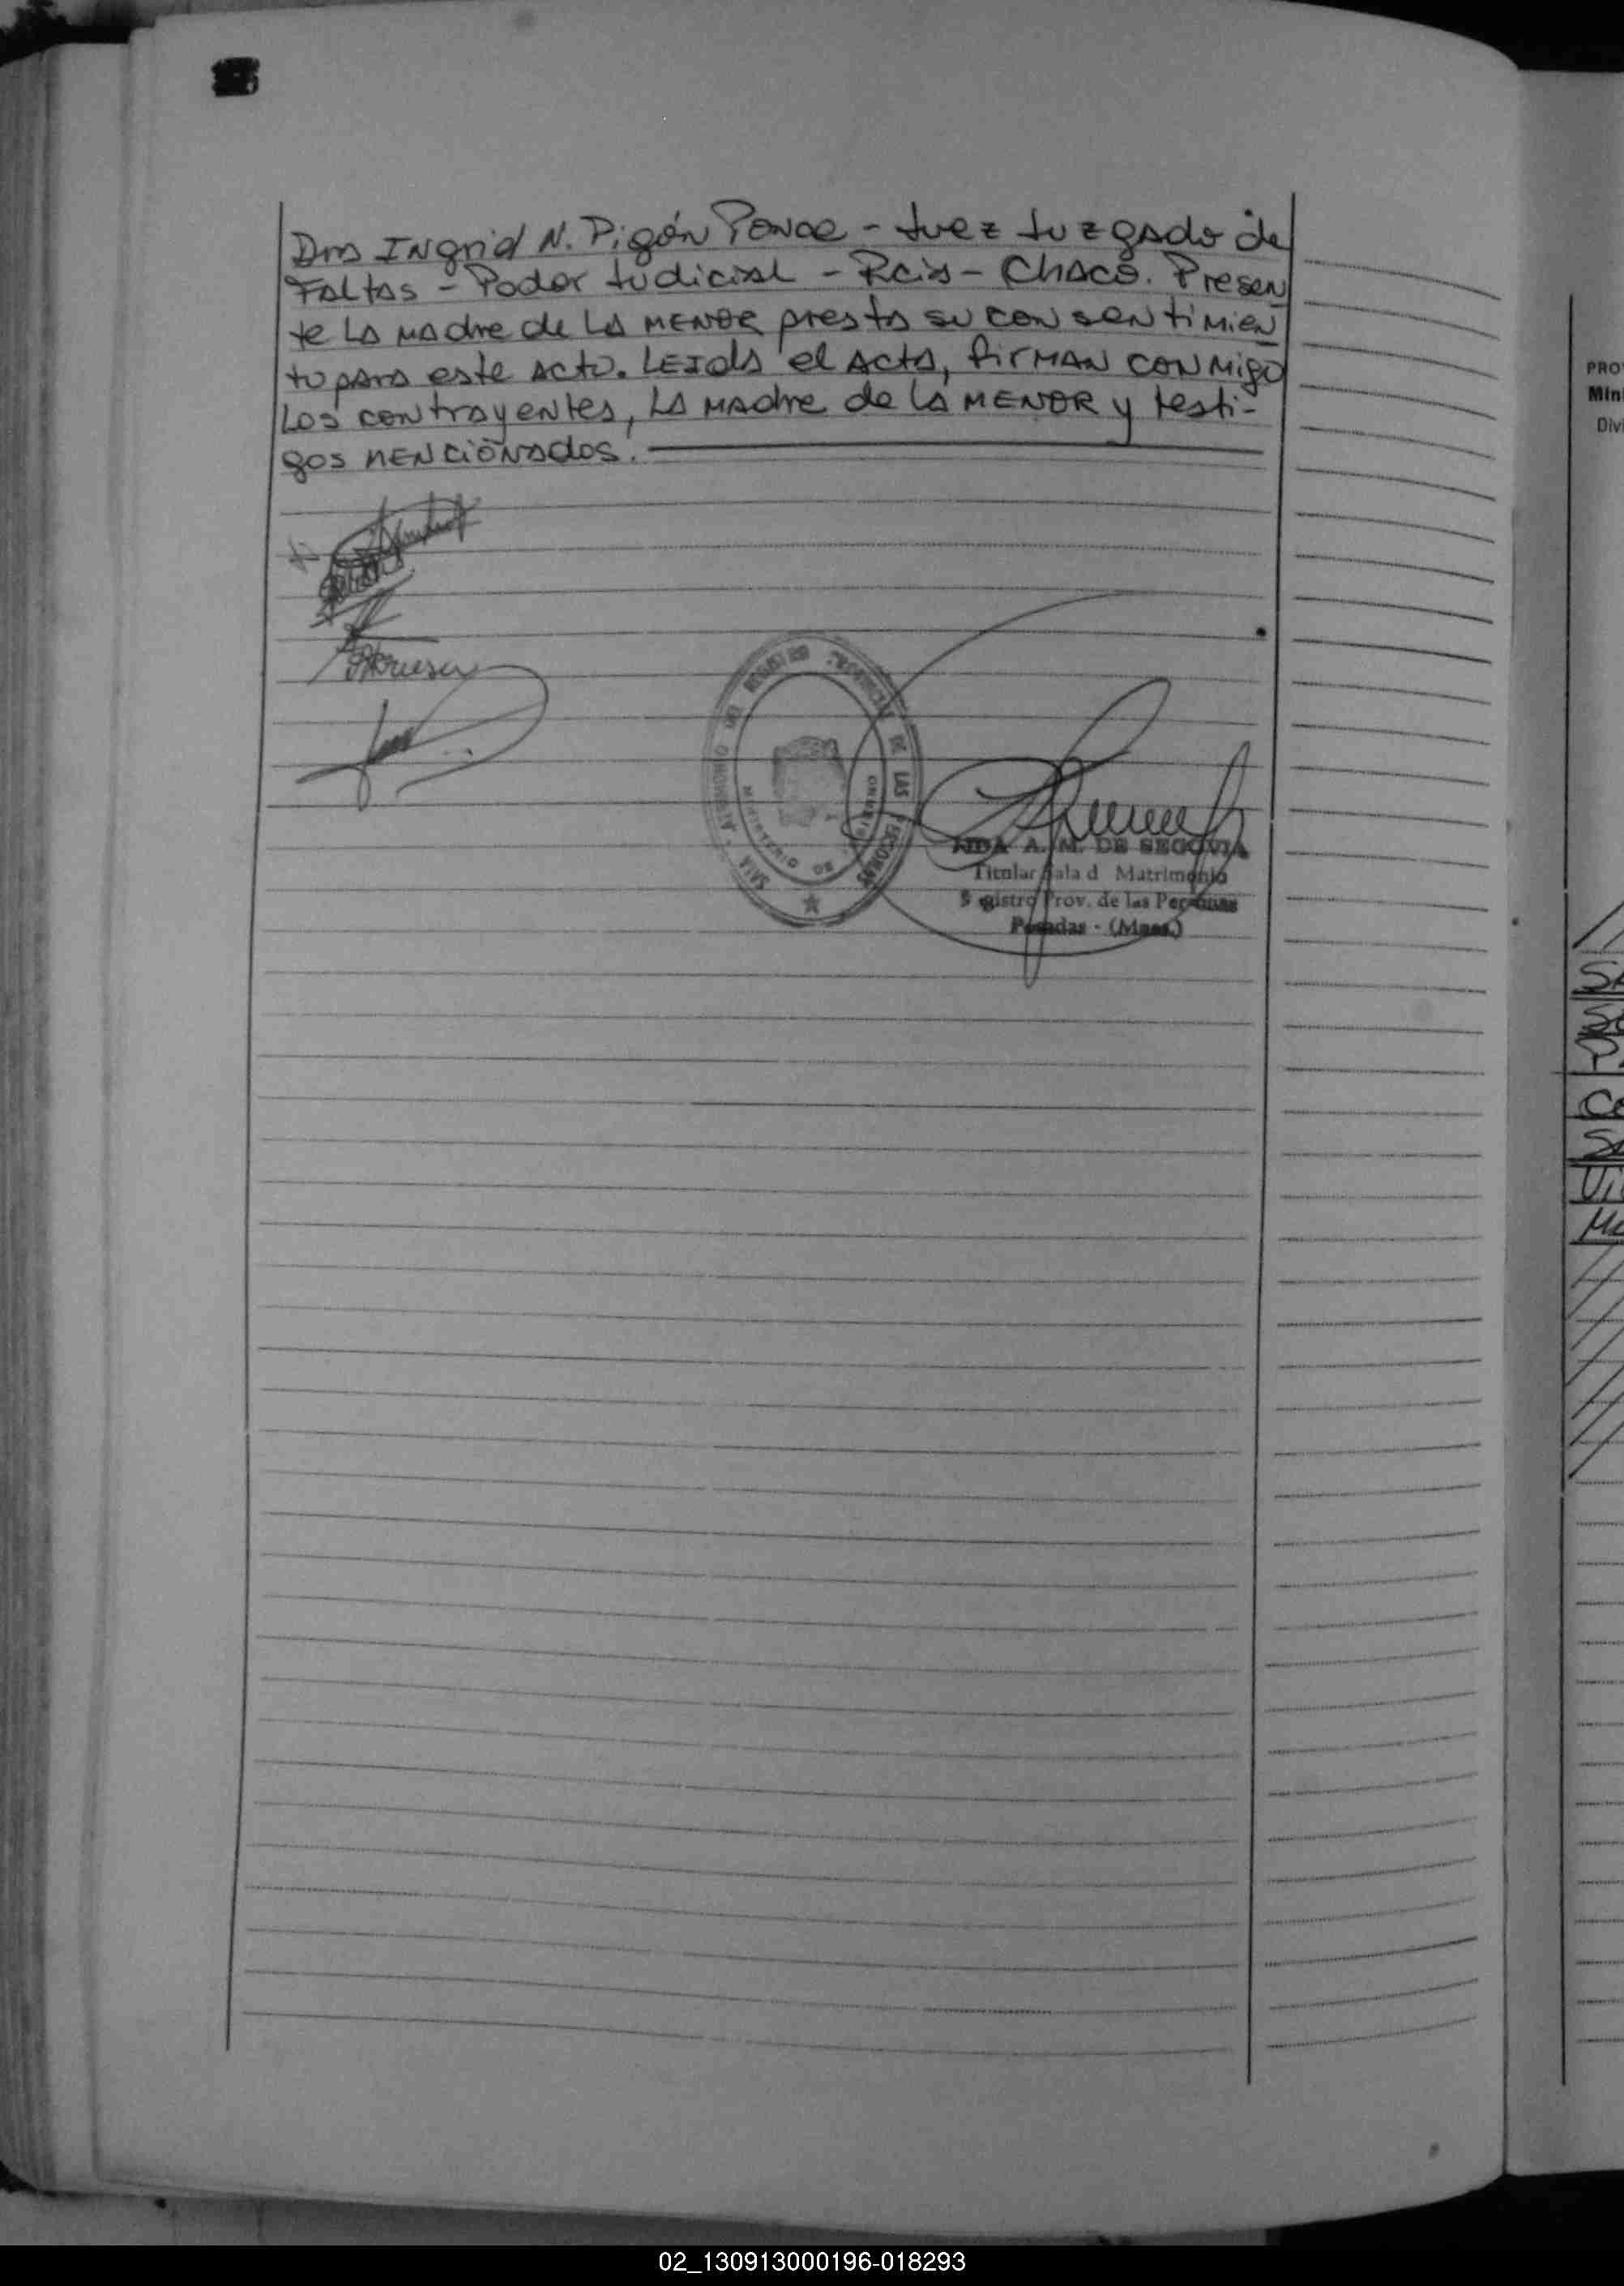 Dra Ingrid N. Pigón Ponce - Juez Juzgado de
Faltas - Poder Judicial - Rcia - Chaco. Presen
te la madre de la menor presta su consentimien
to para este acto. Leida el acta, firman conmigo
los contrayentes, la madre de la menor y testi-
gos mencionados.
SALA
REGISTRO PROVINCIAL DE LAS PERSONAS
MINISTERIO DE
AIDA A. M. DE SEGOVIA
Titular Sala d Matrimonio
R gistro Prov. de las Personas
Posadas - (Mnes.)
PRO
Min
Div
02_130913000196-018293